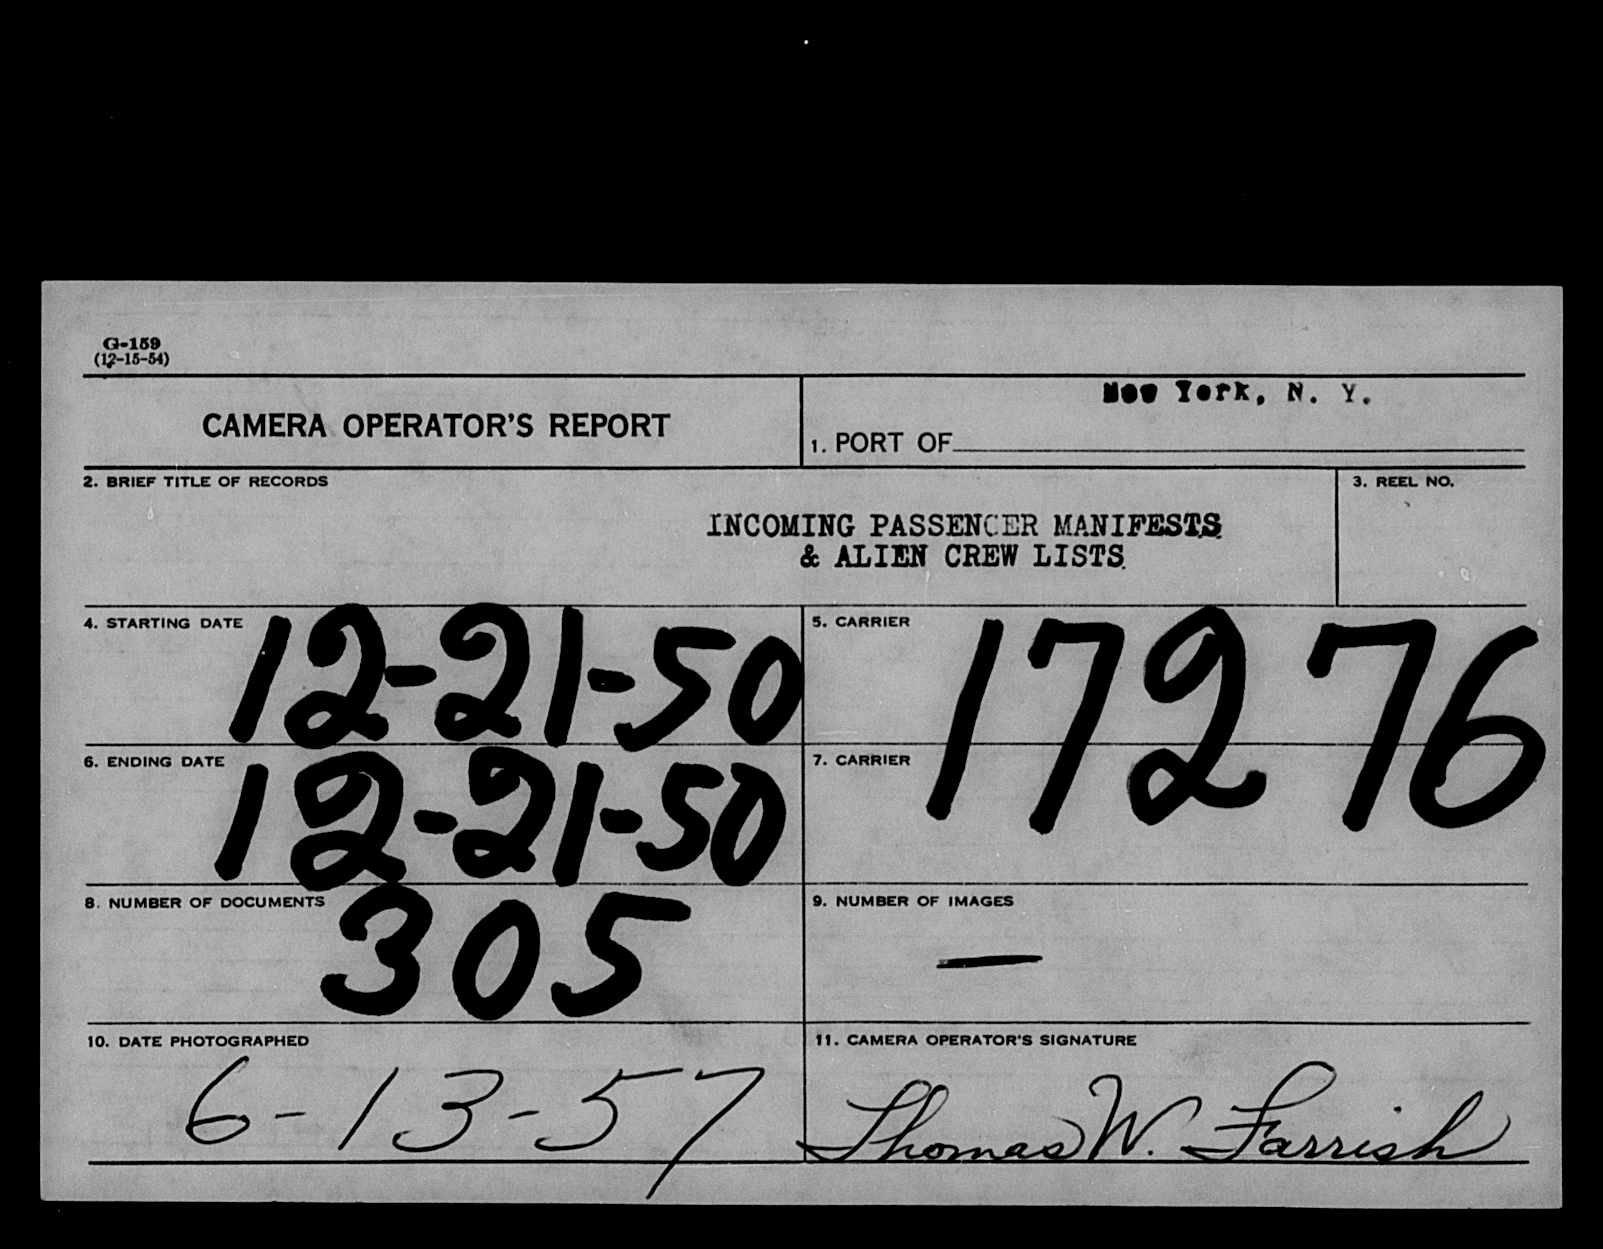 G-159
(12-15-54)
CAMERA OPERATOR'S REPORT
New York, N. Y.
1. PORT OF
2. BRIEF TITLE OF RECORDS
3. REEL NO.
INCOMING PASSENGER MANIFESTS
& ALIEN CREW LISTS
4. STARTING DATE 12-21-50
5. CARRIER 17276
6. ENDING DATE 12-21-50
7. CARRIER
8. NUMBER OF DOCUMENTS 305
9. NUMBER OF IMAGES —
10. DATE PHOTOGRAPHED
11. CAMERA OPERATOR'S SIGNATURE
6-13-57
Thomas W. Farrish